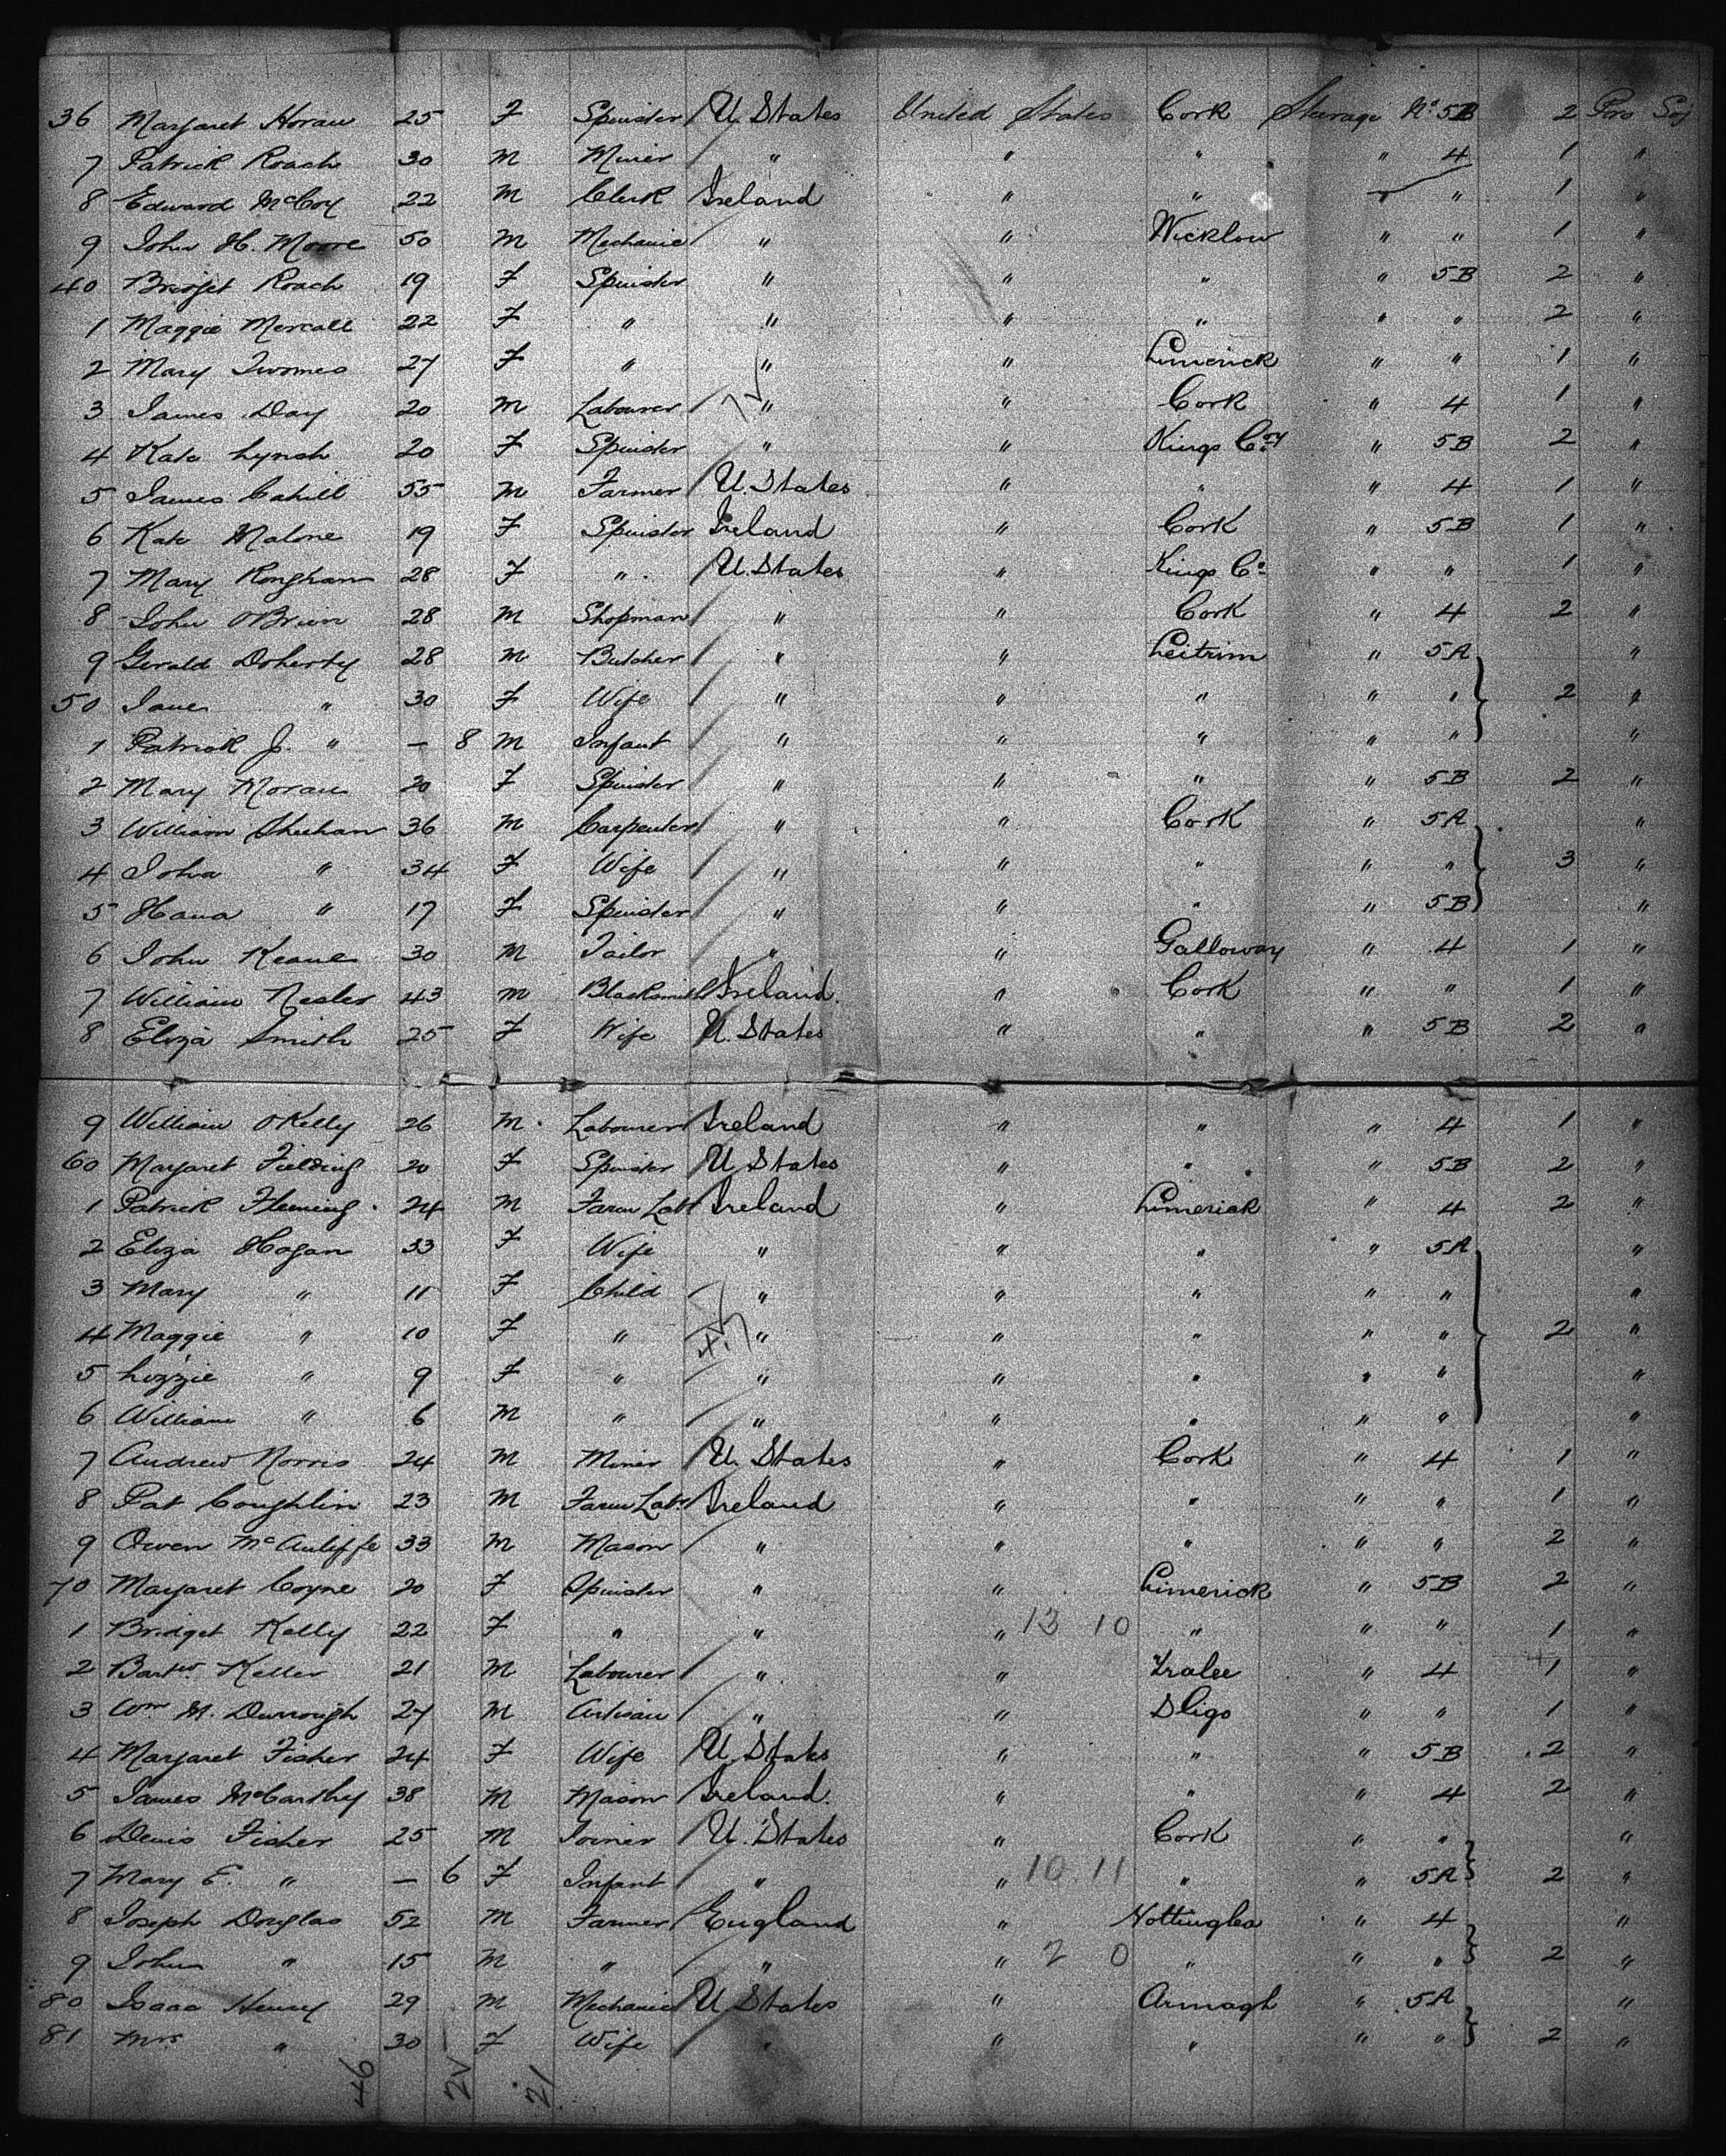 36 Margaret Horan 25 F Spinster U. States United States Cork Steerage No 5B 2 Pro Soj
7 Patrick Roach 30 M Miner " " " " 4 1 "
8 Edward McCoy 22 M Clerk Ireland " " " " 1 "
9 John H. Moore 50 M Mechanic " " Wicklow " " 1 "
40 Bridget Roach 19 F Spinster " " " " 5B 2 "
1 Maggie Mercall 22 F " " " " " " 2 "
2 Mary Twomes 27 F " " " Limerick " " 1 "
3 James Day 20 M Labourer " " Cork " 4 1 "
4 Kate Lynch 20 F Spinster " " Kings Cty " 5B 2 "
5 James Cahill 55 M Farmer U. States " " " 4 1 "
6 Kate Malone 19 F Spinster Ireland " Cork " 5B 1 "
7 Mary Ronghan 28 F " U. States " Kings Co " " 1 "
8 John OBrien 28 M Shopman " " Cork " 4 2 "
9 Gerald Doherty 28 M Butcher " " Leitrim " 5A "
50 Jane " 30 F Wife " " " " " 2 "
1 Patrick J. " — 8 M Infant " " " " " "
2 Mary Moran 20 F Spinster " " " " 5B 2 "
3 William Sheehan 36 M Carpenter " " Cork " 5A "
4 Joha " 34 F Wife " " " " " 3 "
5 Hana " 17 F Spinster " " " " 5B "
6 John Keane 30 M Tailor " " Galloway " 4 1 "
7 William Nesler 43 M Blacksmith Ireland " Cork " " 1 "
8 Eliza Smith 25 F Wife U. States " " " 5B 2 "
9 William OKelly 26 M Labourer Ireland " " " 4 1 "
60 Margaret Fielding 20 F Spinster U States " " " 5B 2 "
1 Patrick Fleming 24 M Farm Labr Ireland " Limerick " 4 2 "
2 Eliza Hogan 33 F Wife " " " " 5A "
3 Mary " 11 F Child " " " " " "
4 Maggie " 10 F " " " " " " 2 "
5 Lizzie " 9 F " " " " " " "
6 William " 6 M " " " " " " "
7 Andrew Norris 24 M Miner U. States " Cork " 4 1 "
8 Pat Coughlin 23 M Farm Labr Ireland " " " " 1 "
9 Owen McAuliffe 33 M Mason " " " " " 2 "
70 Margaret Coyne 20 F Spinster " " Limerick " 5B 2 "
1 Bridget Kelly 22 F " " " 13 10 " " " 1 "
2 Bartw Keller 21 M Labourer " " Tralee " 4 1 "
3 Wm M. Durrough 27 M Artisan " " Sligo " " 1 "
4 Margaret Fisher 24 F Wife U. States " " " 5B 2 "
5 James McCarthy 38 M Mason Ireland. " " " 4 2 "
6 Denis Fisher 25 M Joiner U. States " Cork " " "
7 Mary E. " — 6 F Infant " " 10 11 " " 5A 2 "
8 Joseph Douglas 52 M Farmer England " Nottingha " 4 "
9 John " 15 M " " " 2 0 " " " 2 "
80 Isaac Henry 29 M Mechanic U States " Armagh " 5A "
81 Mrs " 30 F Wife " " " " " 2 "
46 21